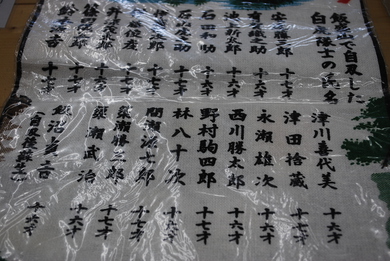 飯盛山で自刃した
白虎隊士の氏名
安達藤三郎 十七才
有賀織之助 十六才
池上新太郎 十六才
石田和助 十六才
石山虎之助 十七才
篠田儀三郎 十七才
鈴木源吉 十七才
津川喜代美 十六才
津田捨蔵 十七才
永瀬雄次 十六才
西川勝太郎 十六才
野村駒四郎 十七才
林八十次 十六才
間瀬源七郎 十七才
簗瀬勝三郎 十七才
簗瀬武治 十六才
飯沼貞吉 十六才
白虎隊蘇士